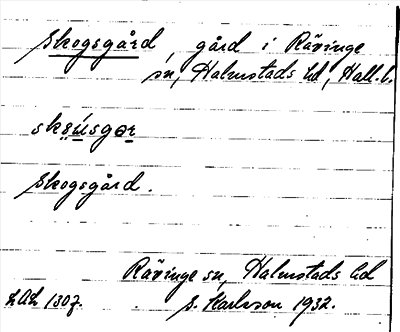 Skogsgård, gård i Rävinge
sn, Halmstads hd, Hall. l.
Skogsgård.
Rävinge sn, Halmstads hd
LAL 1307. S. Karlsson 1932.